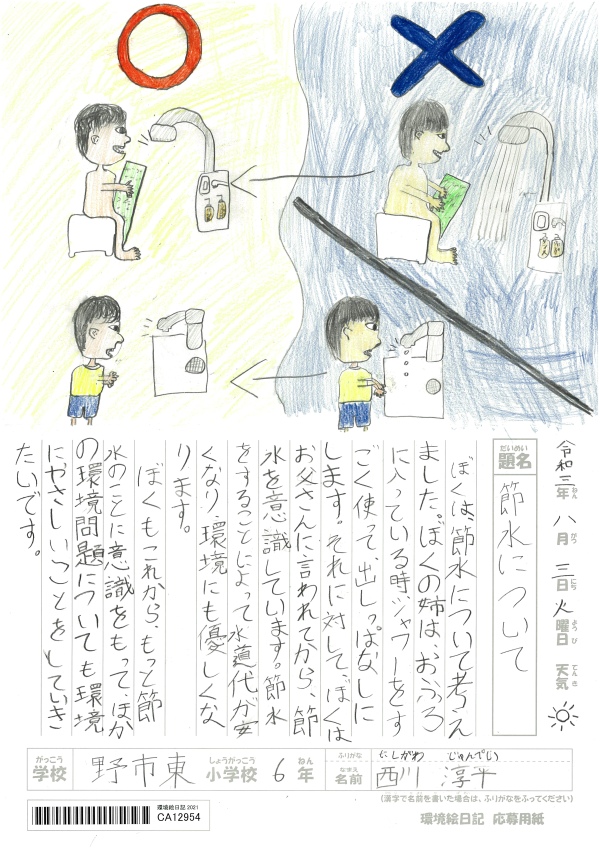 令和三年 八月 三日 火曜日 天気
ねん がつ にち ようび てんき
だいめい
題名 節水について
ぼくは、節水について考え
ました。ぼくの姉は、おふろ
に入っている時、シャワーをす
ごく使って、出しっぱなしに
します。それに対して、ぼくは
お父さんに言われてから、節
水を意識しています。節水
をすることによって水道代が安
くなり、環境にも優しくな
ります。
ぼくもこれから、もっと節
水のことに意識をもって、ほか
の環境問題についても環境
にやさしいことをしていき
たいです。
がっこう しょうがっこう ねん
学校 野市東 小学校 6年
ふりがな にしがわ じゅんぺい
なまえ
名前 西川 淳平
(漢字で名前を書いた場合は、ふりがなをふってください)
環境絵日記 2021
CA12954
環境絵日記 応募用紙